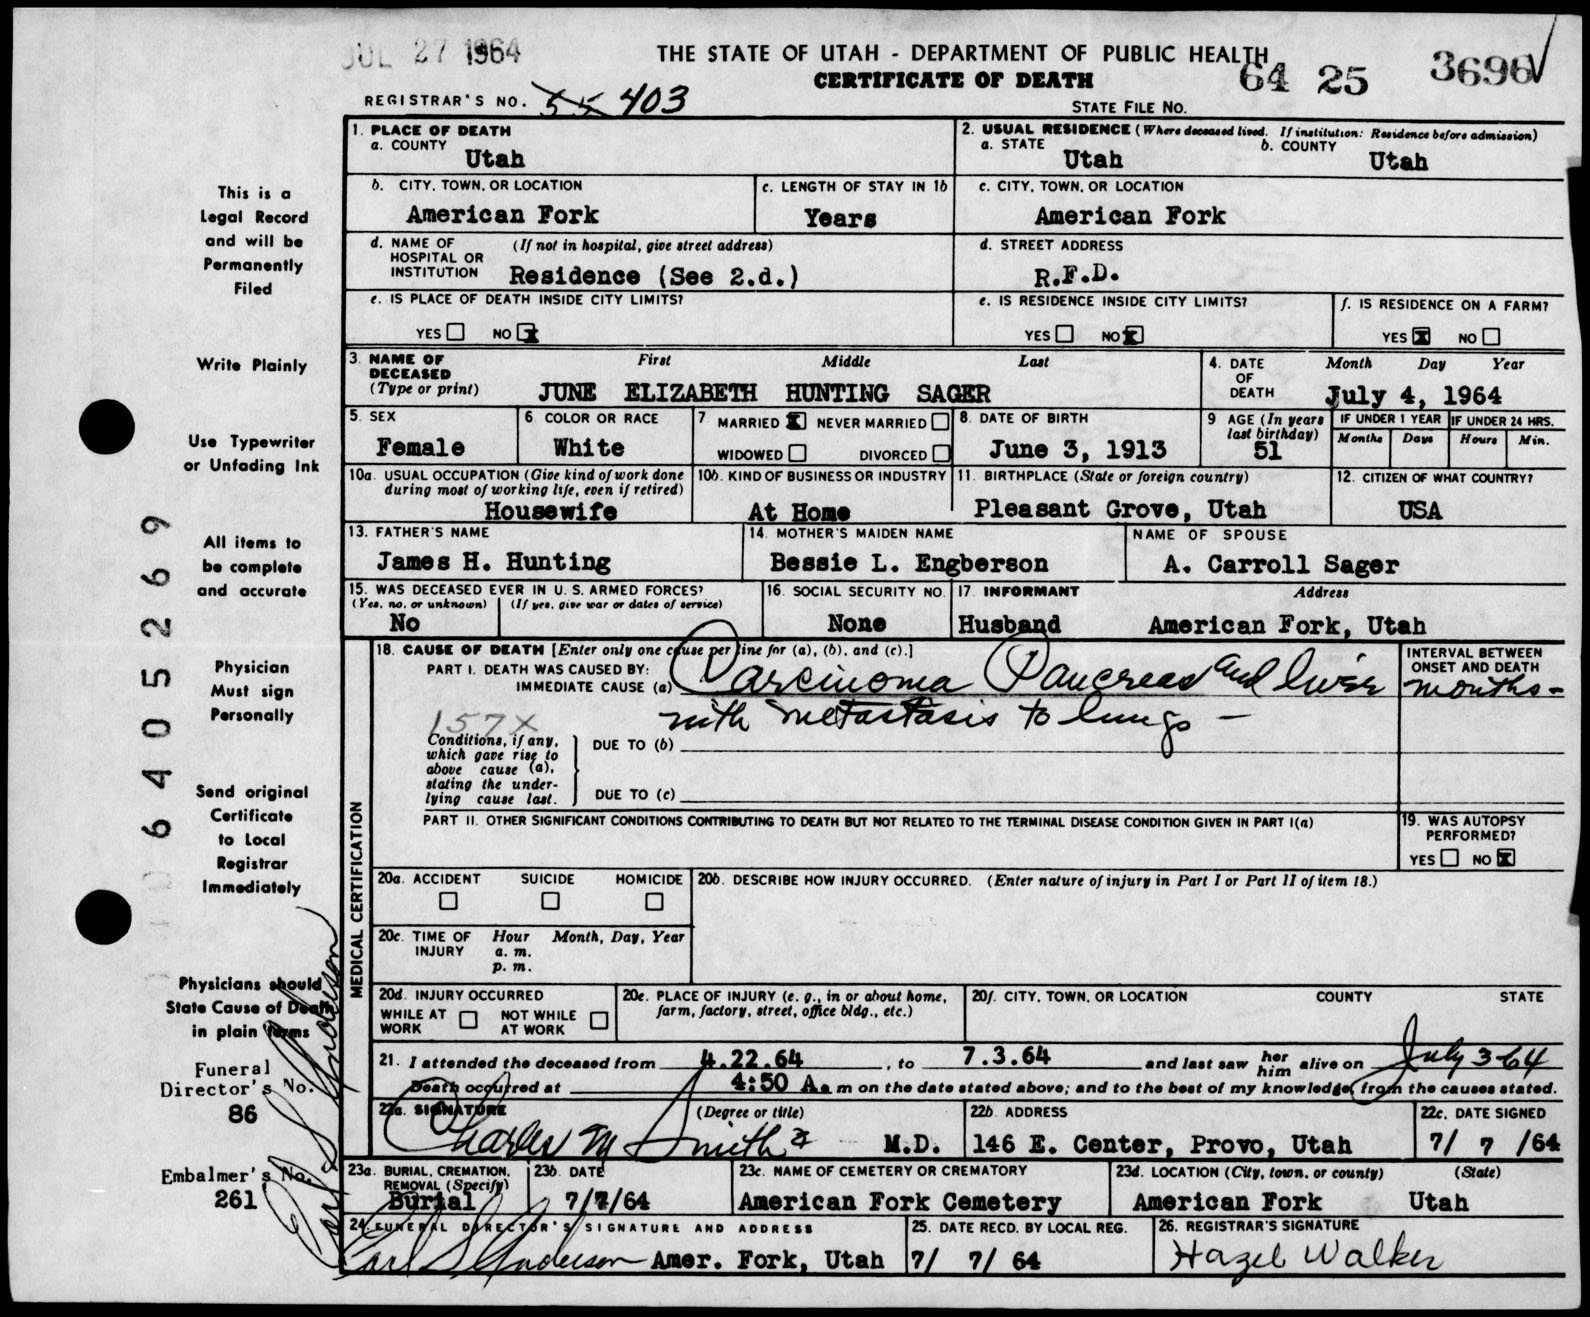 JUL 27 1964
THE STATE OF UTAH - DEPARTMENT OF PUBLIC HEALTH
CERTIFICATE OF DEATH
64 25 3696
REGISTRAR'S NO. 55 403
STATE FILE NO.
This is a
Legal Record
and will be
Permanently
Filed
Write Plainly
Use Typewriter
or Unfading Ink
All items to
be complete
and accurate
Physician
Must sign
Personally
Send original
Certificate
to Local
Registrar
Immediately
Physicians should
State Cause of Death
in plain terms
Funeral
Director's No.
86
Embalmer's No.
261
Earl S Anderson
640 5269
1. PLACE OF DEATH
a. COUNTY
Utah
2. USUAL RESIDENCE (Where deceased lived. If institution: Residence before admission)
a. STATE
Utah
b. COUNTY
Utah
b. CITY, TOWN, OR LOCATION
American Fork
c. LENGTH OF STAY IN 1b
Years
c. CITY, TOWN, OR LOCATION
American Fork
d. NAME OF HOSPITAL OR INSTITUTION (If not in hospital, give street address)
Residence (See 2.d.)
d. STREET ADDRESS
R.F.D.
e. IS PLACE OF DEATH INSIDE CITY LIMITS?
YES NO X
e. IS RESIDENCE INSIDE CITY LIMITS?
YES NO X
f. IS RESIDENCE ON A FARM?
YES X NO
3. NAME OF DECEASED (Type or print)
First Middle Last
JUNE ELIZABETH HUNTING SAGER
4. DATE OF DEATH
Month Day Year
July 4, 1964
5. SEX
Female
6. COLOR OR RACE
White
7 MARRIED X NEVER MARRIED
WIDOWED DIVORCED
8. DATE OF BIRTH
June 3, 1913
9 AGE (In years last birthday)
51
IF UNDER 1 YEAR
Months Days
IF UNDER 24 HRS.
Hours Min.
10a. USUAL OCCUPATION (Give kind of work done during most of working life, even if retired)
Housewife
10b. KIND OF BUSINESS OR INDUSTRY
At Home
11. BIRTHPLACE (State or foreign country)
Pleasant Grove, Utah
12. CITIZEN OF WHAT COUNTRY?
USA
13. FATHER'S NAME
James H. Hunting
14. MOTHER'S MAIDEN NAME
Bessie L. Engberson
NAME OF SPOUSE
A. Carroll Sager
15. WAS DECEASED EVER IN U. S. ARMED FORCES?
(Yes, no, or unknown) (If yes, give war or dates of service)
No
16. SOCIAL SECURITY NO.
None
17. INFORMANT Address
Husband American Fork, Utah
MEDICAL CERTIFICATION
18. CAUSE OF DEATH [Enter only one cause per line for (a), (b), and (c).]
PART I. DEATH WAS CAUSED BY:
IMMEDIATE CAUSE (a) Carcinoma Pancreas and liver
with metastasis to lungs -
157X
Conditions, if any, which gave rise to above cause (a), stating the underlying cause last.
DUE TO (b)
DUE TO (c)
INTERVAL BETWEEN ONSET AND DEATH
months -
PART II. OTHER SIGNIFICANT CONDITIONS CONTRIBUTING TO DEATH BUT NOT RELATED TO THE TERMINAL DISEASE CONDITION GIVEN IN PART I(a)
19. WAS AUTOPSY PERFORMED?
YES NO X
20a. ACCIDENT SUICIDE HOMICIDE
20b. DESCRIBE HOW INJURY OCCURRED. (Enter nature of injury in Part I or Part II of item 18.)
20c. TIME OF INJURY Hour Month, Day, Year
a. m.
p. m.
20d. INJURY OCCURRED
WHILE AT WORK NOT WHILE AT WORK
20e. PLACE OF INJURY (e. g., in or about home, farm, factory, street, office bldg., etc.)
20f. CITY, TOWN, OR LOCATION COUNTY STATE
21. I attended the deceased from 4.22.64, to 7.3.64 and last saw her him alive on July 3-64
Death occurred at 4:50 A. m on the date stated above; and to the best of my knowledge, from the causes stated.
22a. SIGNATURE (Degree or title)
Charles M Smith Jr M.D.
22b. ADDRESS
146 E. Center, Provo, Utah
22c. DATE SIGNED
7/ 7 /64
23a. BURIAL, CREMATION, REMOVAL (Specify)
Burial
23b. DATE
7/7/64
23c. NAME OF CEMETERY OR CREMATORY
American Fork Cemetery
23d. LOCATION (City, town, or county) (State)
American Fork Utah
24. FUNERAL DIRECTOR'S SIGNATURE AND ADDRESS
Earl S Anderson Amer. Fork, Utah
25. DATE RECD. BY LOCAL REG.
7/ 7/ 64
26. REGISTRAR'S SIGNATURE
Hazel Walker